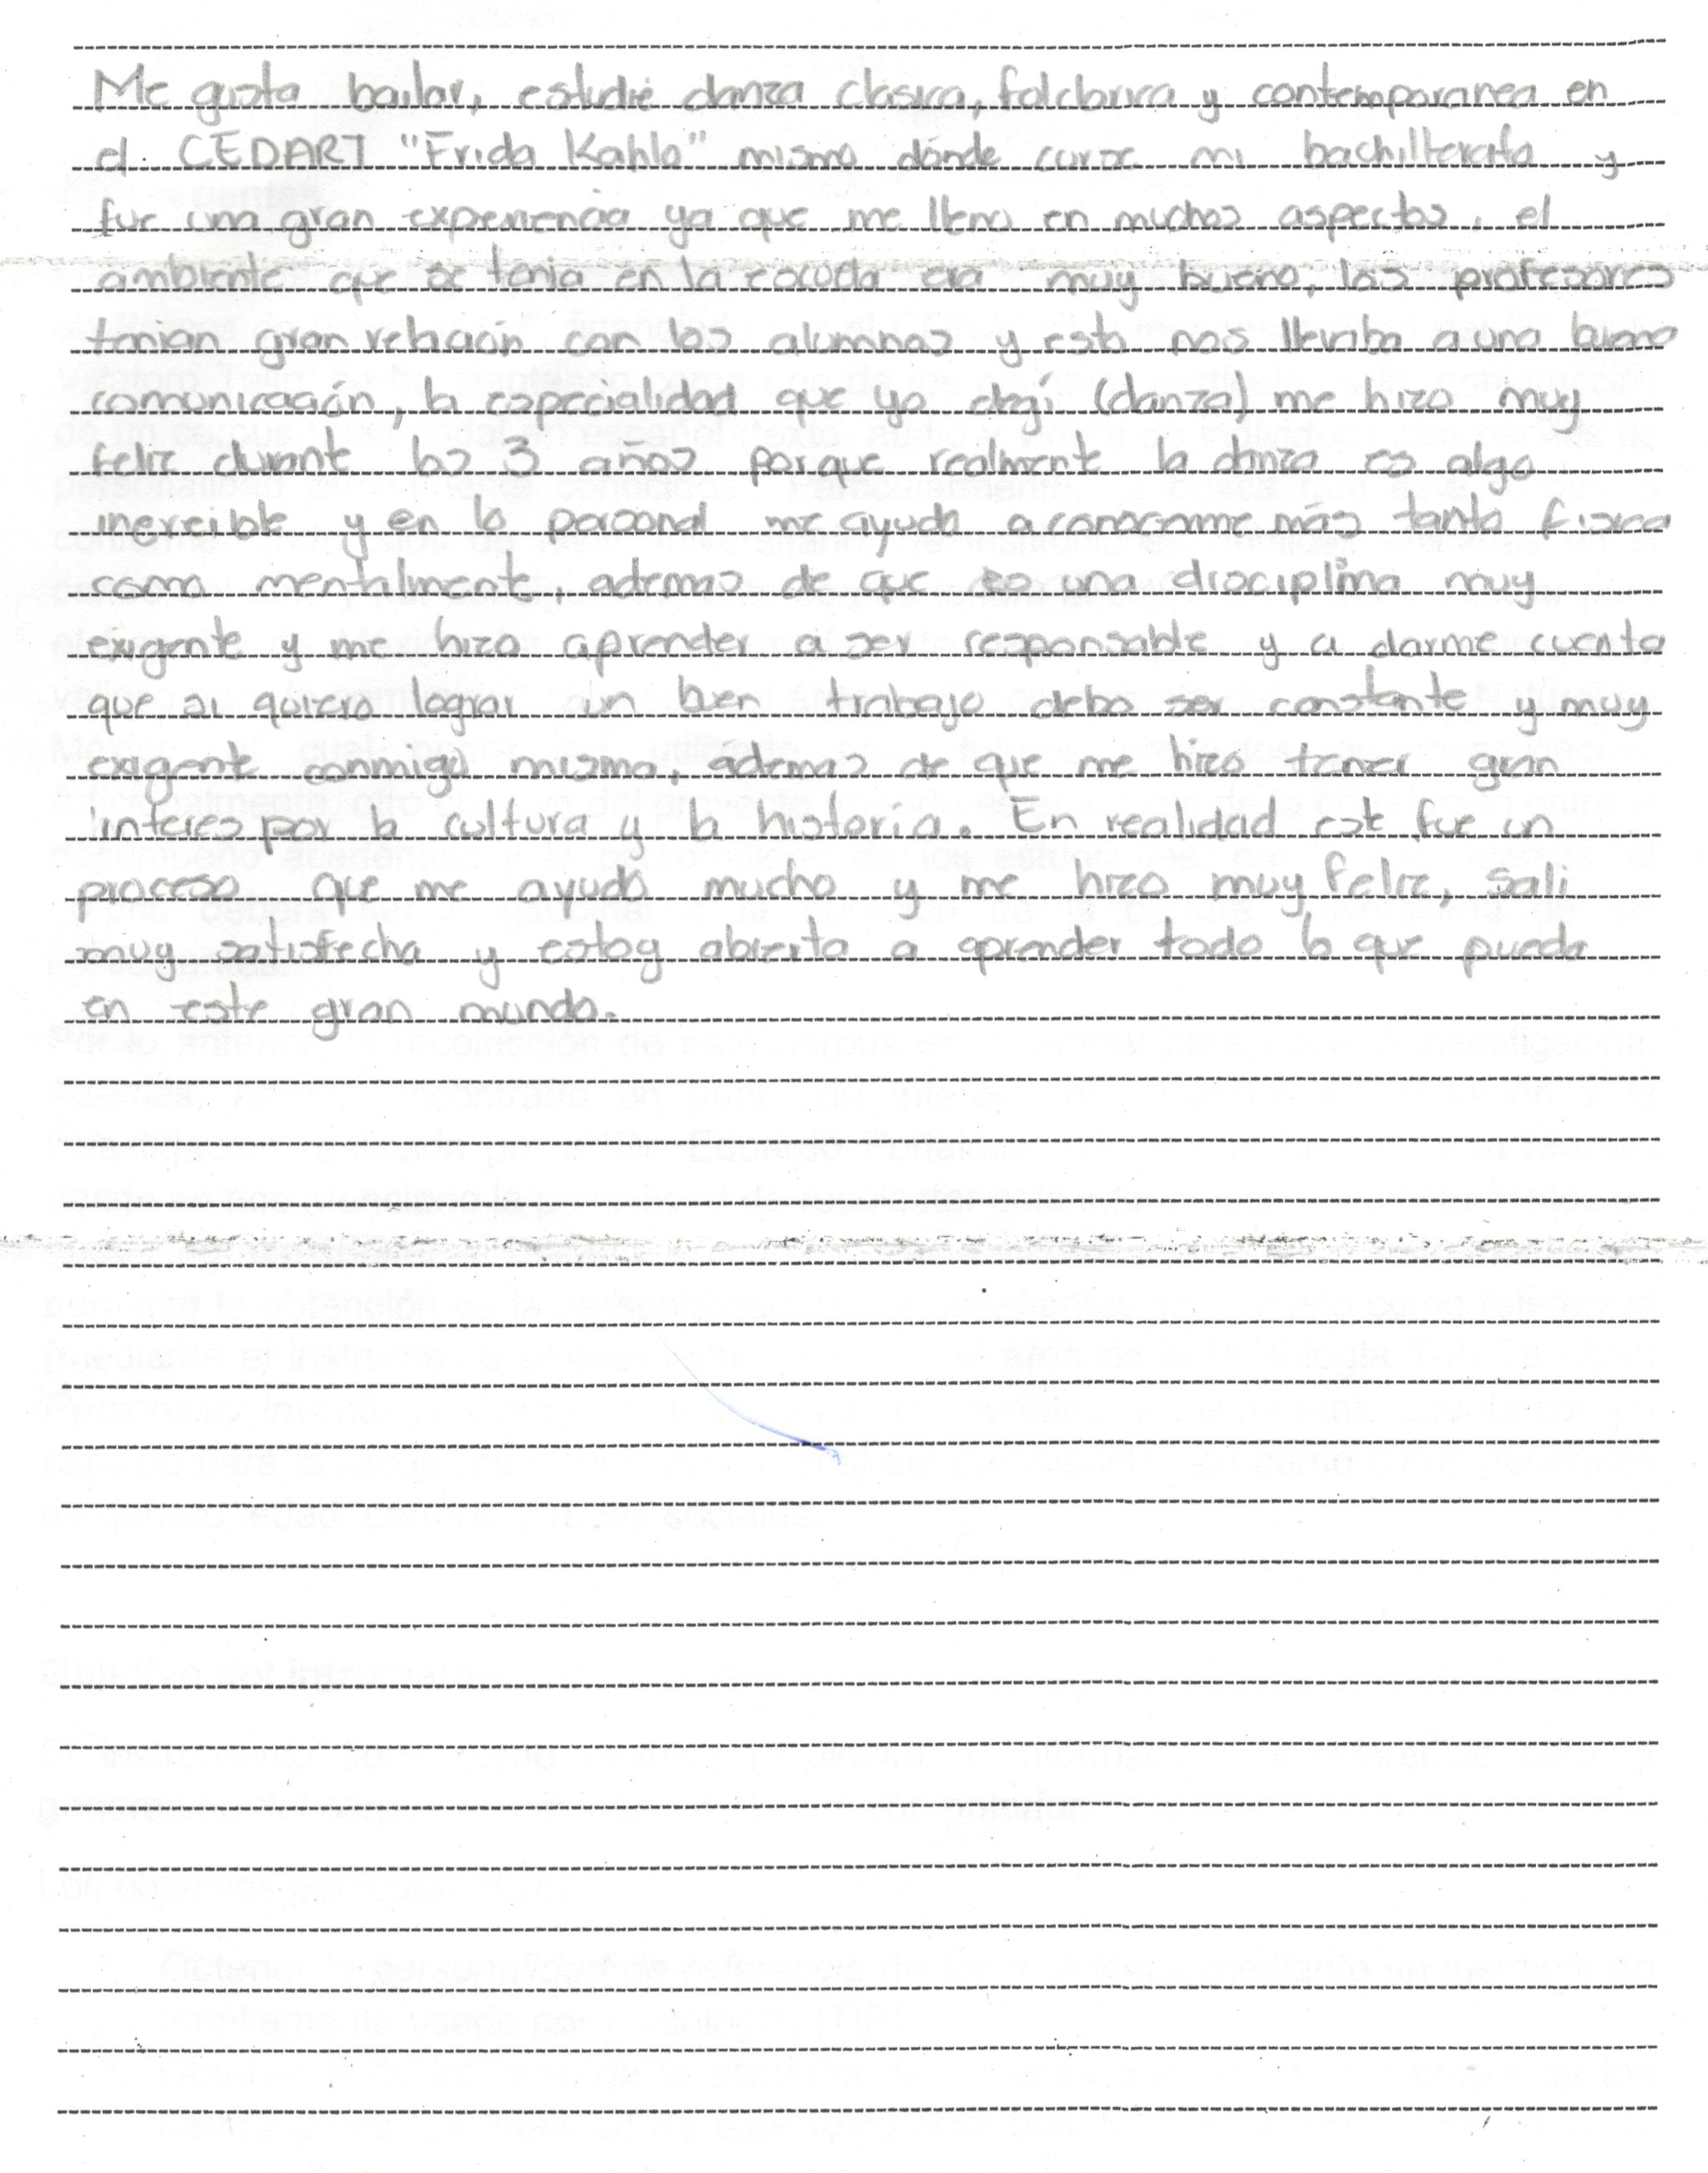 Me gusta bailar, estudié danza clásica, folclorica y contemporanea en
el CEDART "Frida Kahlo" mismo dónde curse mi bachillerato y
fue una gran experiencia ya que me lleno en muchos aspectos, el
ambiente que se tenia en la escuela era muy bueno, los profesores
tenian gran relación con los alumnos y esto nos llevaba a una buena
comunicación, la especialidad que yo elegí (danza) me hizo muy
feliz durante los 3 años porque realmente la danza es algo
inereible y en lo personal me ayudo a conocerme más tanto fisica
como mentalmente, ademas de que es una disciplina muy
exigente y me hizo aprender a ser responsable y a darme cuenta
que si quiero lograr un buen trabajo debo ser constante y muy
exigente conmigo misma, ademas de que me hizo tener gran
interes por la cultura y la historia. En realidad este fue un
proceso que me ayudó mucho y me hizo muy feliz, sali
muy satisfecha y estoy abierta a aprender todo lo que pueda
en este gran mundo.